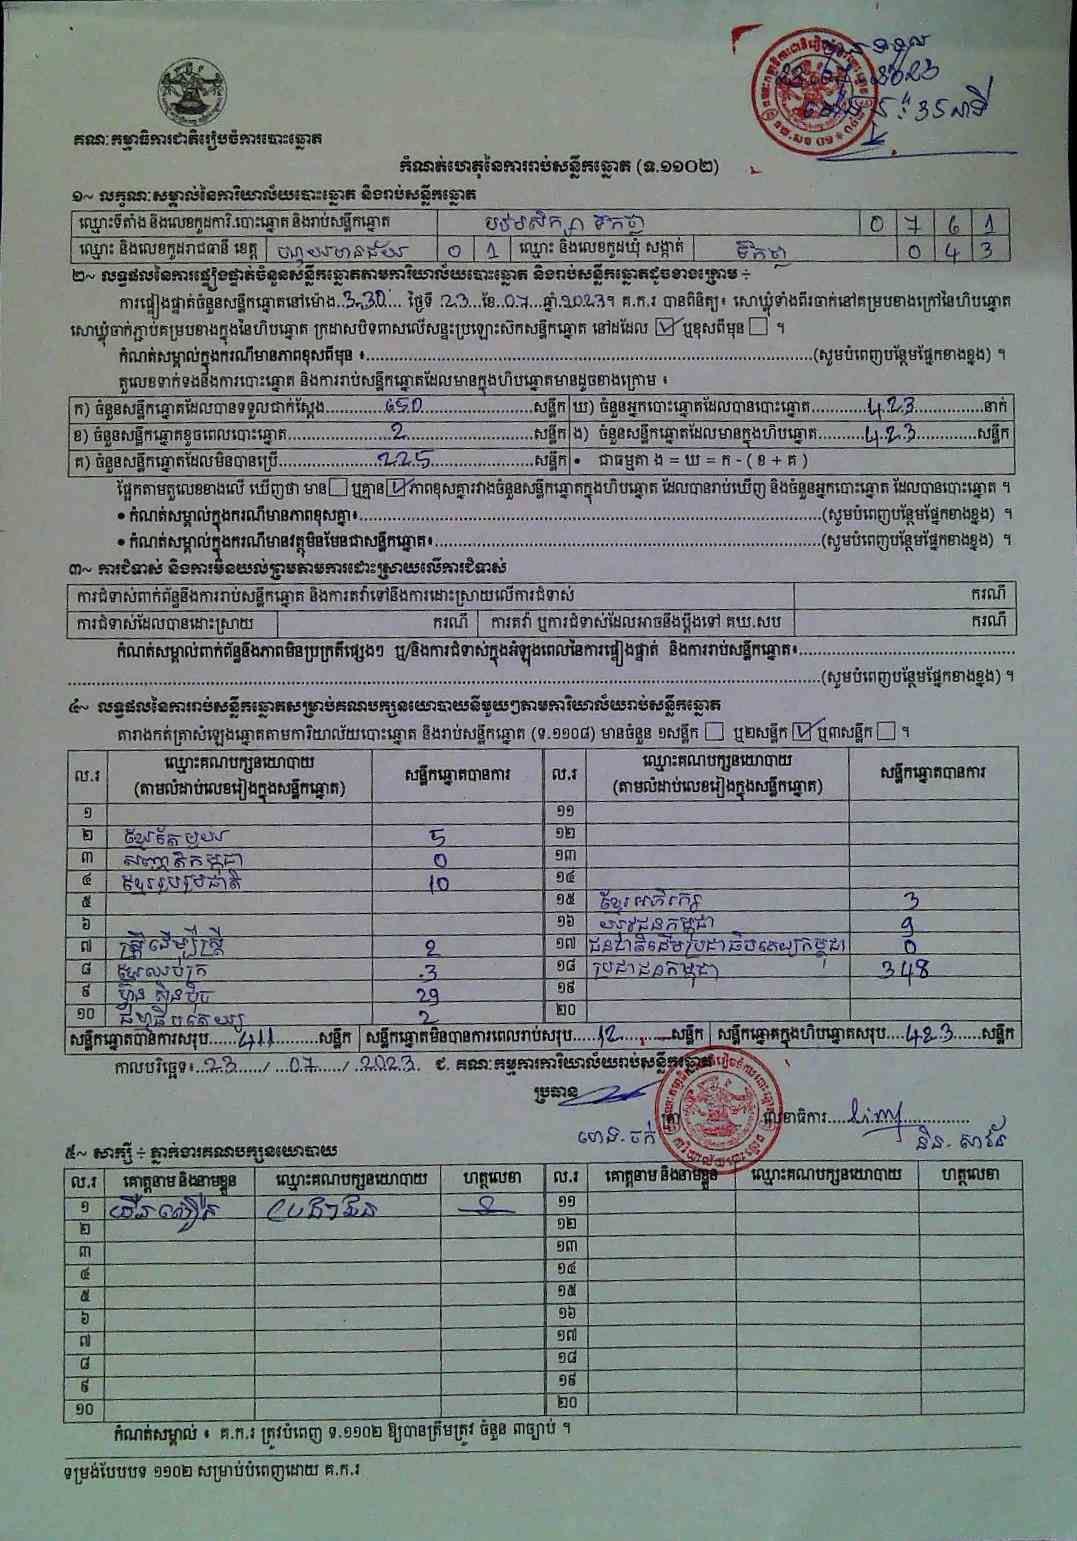 គណៈកម្មាធិការជាតិរៀបចំការបោះឆ្នោត
ទទួល
2023
35 នាទី
កំណត់ហេតុនៃការរាប់សន្លឹកឆ្នោត (ទ.១១០២)
១~ លក្ខណៈសម្គាល់នៃការិយាល័យបោះឆ្នោត និងរាប់សន្លឹកឆ្នោត
ឈ្មោះទីតាំង និងលេខកូដការិ.បោះឆ្នោត និងរាប់សន្លឹកឆ្នោត បឋមសិក្សា ទឹកថ្លា 0 7 6 1
ឈ្មោះ និងលេខកូដរាជធានី ខេត្ត បន្ទាយមានជ័យ 0 1 ឈ្មោះ និងលេខកូដឃុំ សង្កាត់ ទឹកថ្លា 0 4 3
២~ លទ្ធផលនៃការផ្ទៀងផ្ទាត់ចំនួនសន្លឹកឆ្នោតតាមការិយាល័យបោះឆ្នោត និងរាប់សន្លឹកឆ្នោតដូចខាងក្រោម ÷
ការផ្ទៀងផ្ទាត់ចំនួនសន្លឹកឆ្នោតនៅម៉ោង..3:30.... ថ្ងៃទី .23...ខែ..07... ឆ្នាំ.2023។ គ.ក.រ បានពិនិត្យ៖ សោឃ្លុំទាំងពីរចាក់នៅគម្របខាងក្រៅនៃហិបឆ្នោត
សោឃ្លុំចាក់ភ្ជាប់គម្របខាងក្នុងនៃហិបឆ្នោត ក្រដាសបិទពាសលើសន្ទះប្រឡោះស៊កសន្លឹកឆ្នោត នៅដដែល ☑ ឬខុសពីមុន ☐ ។
កំណត់សម្គាល់ក្នុងករណីមានភាពខុសពីមុន ៖..........(សូមបំពេញបន្ថែមផ្នែកខាងខ្នង) ។
តួលេខទាក់ទងនឹងការបោះឆ្នោត និងការរាប់សន្លឹកឆ្នោតដែលមានក្នុងហិបឆ្នោតមានដូចខាងក្រោម ៖
ក) ចំនួនសន្លឹកឆ្នោតដែលបានទទួលជាក់ស្តែង..........650..........សន្លឹក ឃ) ចំនួនអ្នកបោះឆ្នោតដែលបានបោះឆ្នោត..........423..........នាក់
ខ) ចំនួនសន្លឹកឆ្នោតខូចពេលបោះឆ្នោត..........2..........សន្លឹក ង) ចំនួនសន្លឹកឆ្នោតដែលមានក្នុងហិបឆ្នោត..........423..........សន្លឹក
គ) ចំនួនសន្លឹកឆ្នោតដែលមិនបានប្រើ..........225..........សន្លឹក • ជាធម្មតា ង = ឃ = ក - ( ខ + គ )
ផ្អែកតាមតួលេខខាងលើ ឃើញថា មាន ☐ ឬគ្មាន ☑ ភាពខុសគ្នារវាងចំនួនសន្លឹកឆ្នោតក្នុងហិបឆ្នោត ដែលបានរាប់ឃើញ និងចំនួនអ្នកបោះឆ្នោត ដែលបានបោះឆ្នោត ។
• កំណត់សម្គាល់ក្នុងករណីមានភាពខុសគ្នា៖..........(សូមបំពេញបន្ថែមផ្នែកខាងខ្នង) ។
• កំណត់សម្គាល់ក្នុងករណីមានវត្ថុមិនមែនជាសន្លឹកឆ្នោត៖..........(សូមបំពេញបន្ថែមផ្នែកខាងខ្នង) ។
៣~ ការជំទាស់ និងការមិនយល់ព្រមតាមការដោះស្រាយលើការជំទាស់
ការជំទាស់ពាក់ព័ន្ធនឹងការរាប់សន្លឹកឆ្នោត និងការតវ៉ាទៅនឹងការដោះស្រាយលើការជំទាស់ ករណី
ការជំទាស់ដែលបានដោះស្រាយ ករណី ការតវ៉ា ឬការជំទាស់ដែលអាចនឹងប្តឹងទៅ គឃ.សប ករណី
កំណត់សម្គាល់ពាក់ព័ន្ធនឹងភាពមិនប្រក្រតីផ្សេងៗ ឬ/និងការជំទាស់ក្នុងអំឡុងពេលនៃការផ្ទៀងផ្ទាត់ និងការរាប់សន្លឹកឆ្នោត៖..........
..........(សូមបំពេញបន្ថែមផ្នែកខាងខ្នង) ។
៤~ លទ្ធផលនៃការរាប់សន្លឹកឆ្នោតសម្រាប់គណបក្សនយោបាយនីមួយៗតាមការិយាល័យរាប់សន្លឹកឆ្នោត
តារាងកត់ត្រាសំឡេងឆ្នោតតាមការិយាល័យបោះឆ្នោត និងរាប់សន្លឹកឆ្នោត (ទ.១១០៨) មានចំនួន ១សន្លឹក ☐ ឬ២សន្លឹក ☑ ឬ៣សន្លឹក ☐ ។
ល.រ ឈ្មោះគណបក្សនយោបាយ (តាមលំដាប់លេខរៀងក្នុងសន្លឹកឆ្នោត) សន្លឹកឆ្នោតបានការ ល.រ ឈ្មោះគណបក្សនយោបាយ (តាមលំដាប់លេខរៀងក្នុងសន្លឹកឆ្នោត) សន្លឹកឆ្នោតបានការ
១ ១១
២ ខ្មែរតែមួយ 5 ១២
៣ សញ្ជាតិកម្ពុជា 0 ១៣
៤ ខ្មែររួបរួមជាតិ 10 ១៤
៥ ១៥ ខ្មែរអភិរក្ស 3
៦ ១៦ យុវជនកម្ពុជា 9
៧ ស្ត្រីដើម្បីស្ត្រី 2 ១៧ ជនជាតិដើមប្រជាធិបតេយ្យកម្ពុជា 0
៨ 3 ១៨ ប្រជាជនកម្ពុជា 348
៩ ហ៊្វុនស៊ិនប៉ិច 29 ១៩
១០ 2 ២០
សន្លឹកឆ្នោតបានការសរុប......411..........សន្លឹក សន្លឹកឆ្នោតមិនបានការពេលរាប់សរុប.....12.......សន្លឹក សន្លឹកឆ្នោតក្នុងហិបឆ្នោតសរុប....423.......សន្លឹក
កាលបរិច្ឆេទ៖...23....../ ...07....../ ..2023.. ជ. គណៈកម្មការការិយាល័យរាប់សន្លឹកឆ្នោត
ប្រធាន
ត្រា លេខាធិការ....................
៥~ សាក្សី ÷ ភ្នាក់ងារគណបក្សនយោបាយ
ល.រ គោត្តនាម និងនាមខ្លួន ឈ្មោះគណបក្សនយោបាយ ហត្ថលេខា ល.រ គោត្តនាម និងនាមខ្លួន ឈ្មោះគណបក្សនយោបាយ ហត្ថលេខា
១ ប្រជាជន ១១
២ ១២
៣ ១៣
៤ ១៤
៥ ១៥
៦ ១៦
៧ ១៧
៨ ១៨
៩ ១៩
១០ ២០
កំណត់សម្គាល់ ៖ គ.ក.រ ត្រូវបំពេញ ទ.១១០២ ឱ្យបានត្រឹមត្រូវ ចំនួន ៣ច្បាប់ ។
ទម្រង់បែបបទ ១១០២ សម្រាប់បំពេញដោយ គ.ក.រ